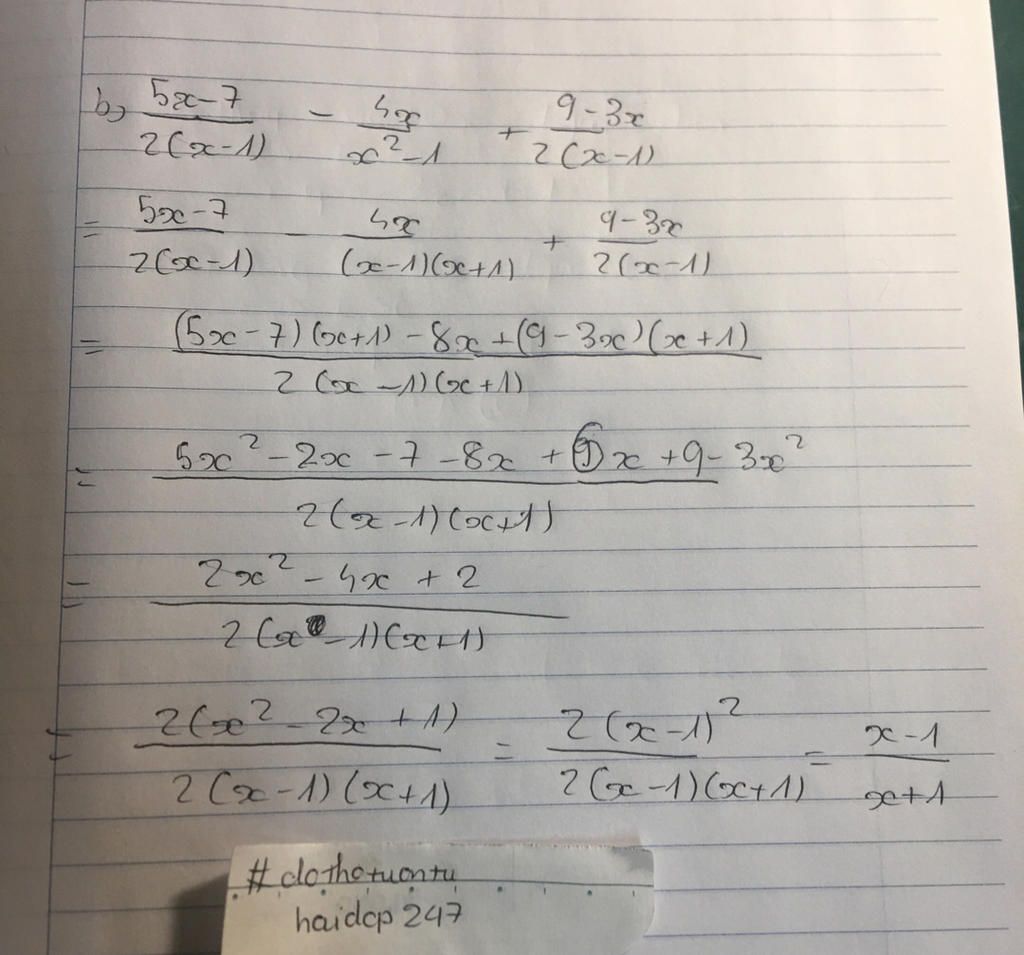 b, 5x-7 / 2(x-1) - 4x / x²-1 + 9-3x / 2(x-1)
= 5x-7 / 2(x-1) - 4x / (x-1)(x+1) + 9-3x / 2(x-1)
= (5x-7)(x+1) - 8x + (9-3x)(x+1) / 2(x-1)(x+1)
= 5x² - 2x - 7 - 8x + x + 9 - 3x² / 2(x-1)(x+1)
= 2x² - 4x + 2 / 2(x-1)(x+1)
= 2(x² - 2x + 1) / 2(x-1)(x+1) = 2(x-1)² / 2(x-1)(x+1) = x-1 / x+1
#clothotuontu
haidcp247